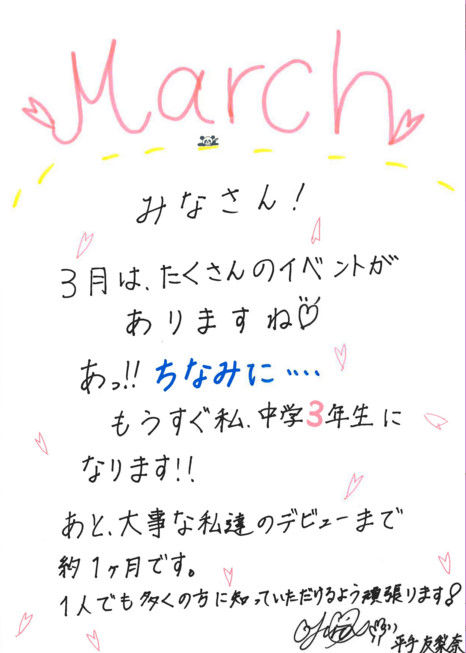 March
みなさん!
3月は、たくさんのイベントが
ありますね♡
あっ!! ちなみに‥‥
もうすぐ私、中学3年生に
なります!!
あと、大事な私達のデビューまで
約1ヶ月です。
1人でも多くの方に知っていただけるよう頑張ります!
平手友梨奈